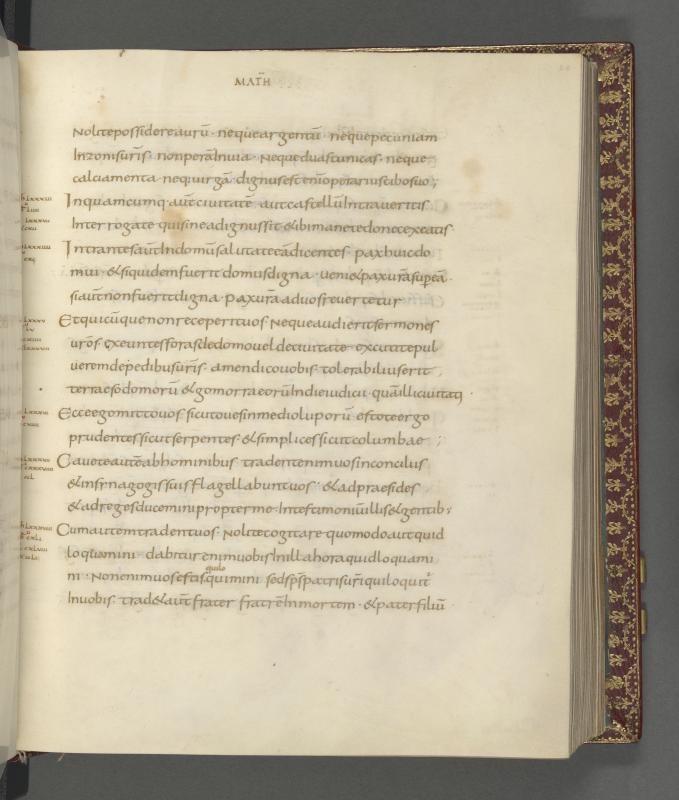 MATH
Nolitepossidereaurū · nequeargentū · nequepecuniam
Inzonisur̄is · nonperāInuia · Nequeduastunicas · neque
calciamenta · nequirgā · dignusestenīoperariuscibosuo;
Inquamcumq · aut̄ciuitatē autcastellūIntraueritis
Interrogate quisineadignussit &ibimanetedonecexeatis
Intrantesaut̄Indomūsalutateeādicentes · paxhuicdo
mui · &siquidemfuerit domusdigna · ueni&paxur̄asupeā
siaut̄nonfueritdigna · paxur̄aaduosreuertetur
Etquicūquenonreceperituos Nequeaudieritsermones
ur̄os · exeuntesforasdedomouel deciuitate · excutitepul
ueremdepedibusur̄is · amendicouobis · tolerabiliuserit
terraesodomorū &gomorraeorūIndieiudicii · quāilliciuitati ·
Ecceegomittouos sicutouesinmedioluporū · estoteergo
prudentessicutserpentes · &simplicessicutcolumbae ;
Caueteautēabhominibus tradentenimuosinconciliis
&insynagogissuis flagellabuntuos · &adpraesides
&adregesduceminipropterme · Intestimoniūillis&gentib;
Cumautemtradentuos · Nolitecogitare quomodoautquid
loquamini · dabitur enimuobisInillahoraquidloquami
ni · Nonenimuosestisquiloquimini sedsp̄spatrisur̄iquiloquit̄
Inuobis · trad&aut̄frater fratrēInmortem · &paterfiliū